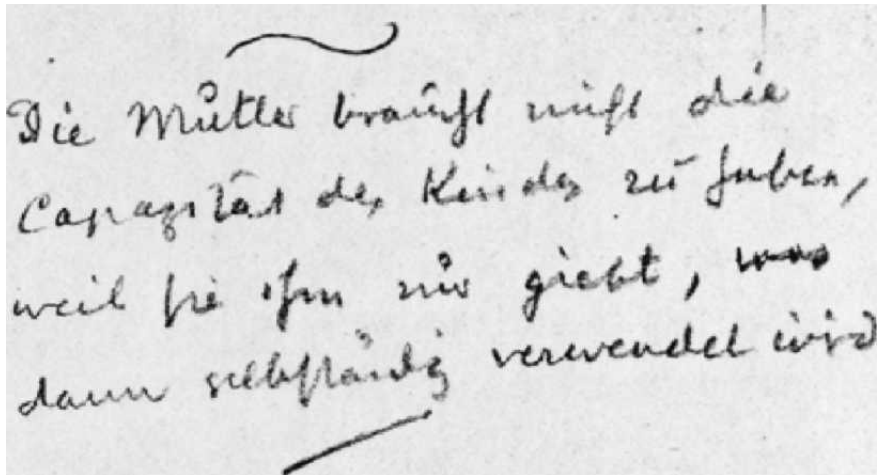 Die Mutter braucht nicht die
Capazität des Kindes zu haben,
weil sie ihm nur giebt, was
dann selbständig verwendet wird